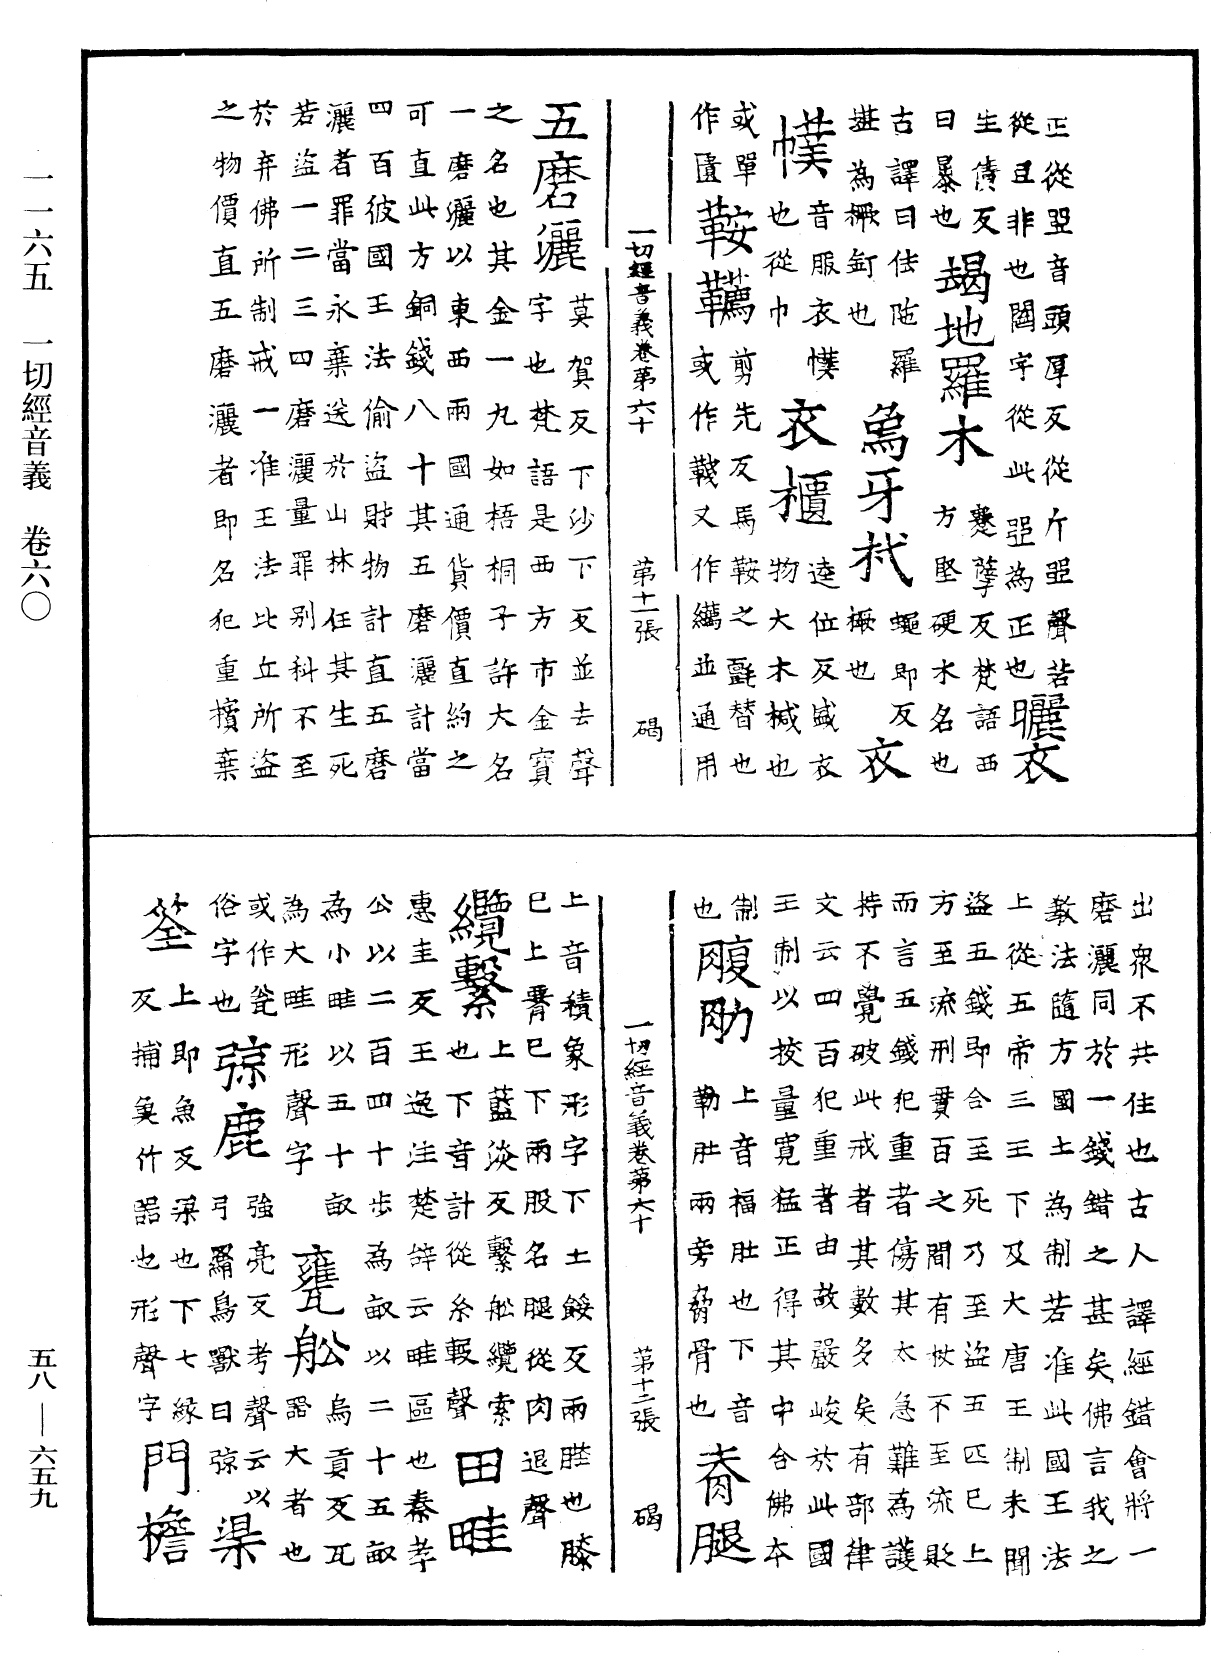 一一六五 一切經音義 卷六〇
正從㔽音頭厚反從斤㔽聲若
從豆非也鬪字從此㔽為正也曬衣
生債反
曰暴也朅地羅木蹇孽反梵語西
方堅硬木名也
古譯曰佉陁羅
堪為橛釘也象牙杙蠅即反
橛也衣
幞音服衣幞
也從巾衣櫃逵位反盛衣
物大木椷也
或單
作薦鞍韉剪先反馬鞍之氈替也
或作韀又作䌼並通用
一切經音義卷第六十 第十一張 碣
五磨灑莫賀反下沙下反並去聲
字也梵語是西方市金寶
之名也其金一九如梧桐子許大名
一磨灑以東西兩國通貨價直約之
可直此方銅錢八十其五磨灑計當
四百彼國王法偷盜財物計直五磨
灑者罪當永棄送於山林任其生死
若盜一二三四磨灑量罪別科不至
於弃佛所制戒一准王法比丘所盜
之物價直五磨灑者即名犯重擯棄
出眾不共住也古人譯經錯會將一
磨灑同於一錢錯之甚矣佛言我之
教法隨方國土為制若准此國王法
上從五帝三王下及大唐王制未聞
盜五錢即合至死乃至盜五匹已上
方至流刑貫百之間有杖不至流貶
而言五錢犯重者傷其太急難為護
持不覺破此戒者其數多矣有部律
文云四百犯重者由故嚴峻於此國
王制以挍量寬猛正得其中合佛本
制
也腹肋上音福肚也下音
勒肚兩旁脅骨也脊腿
一切經音義卷第六十 第十二張 碣
上音積象形字下土餒反兩䏶也膝
已上䯗已下兩股名腿從肉退聲
纜繫上藍淡反繫舩纜索
也下音計從糸毄聲田畦
惠圭反王逸注楚辭云畦區也秦孝
公以二百四十步為畝以二十五畝
為小畦以五十畝
為大畦形聲字甕舩烏貢反瓦
器大者也
或作瓮
俗字也弶鹿強亮反考聲云以
弓罥鳥獸曰弶渠
筌上即魚反渠也下七緣
反捕魚竹器也形聲字門檐
五八—六五九